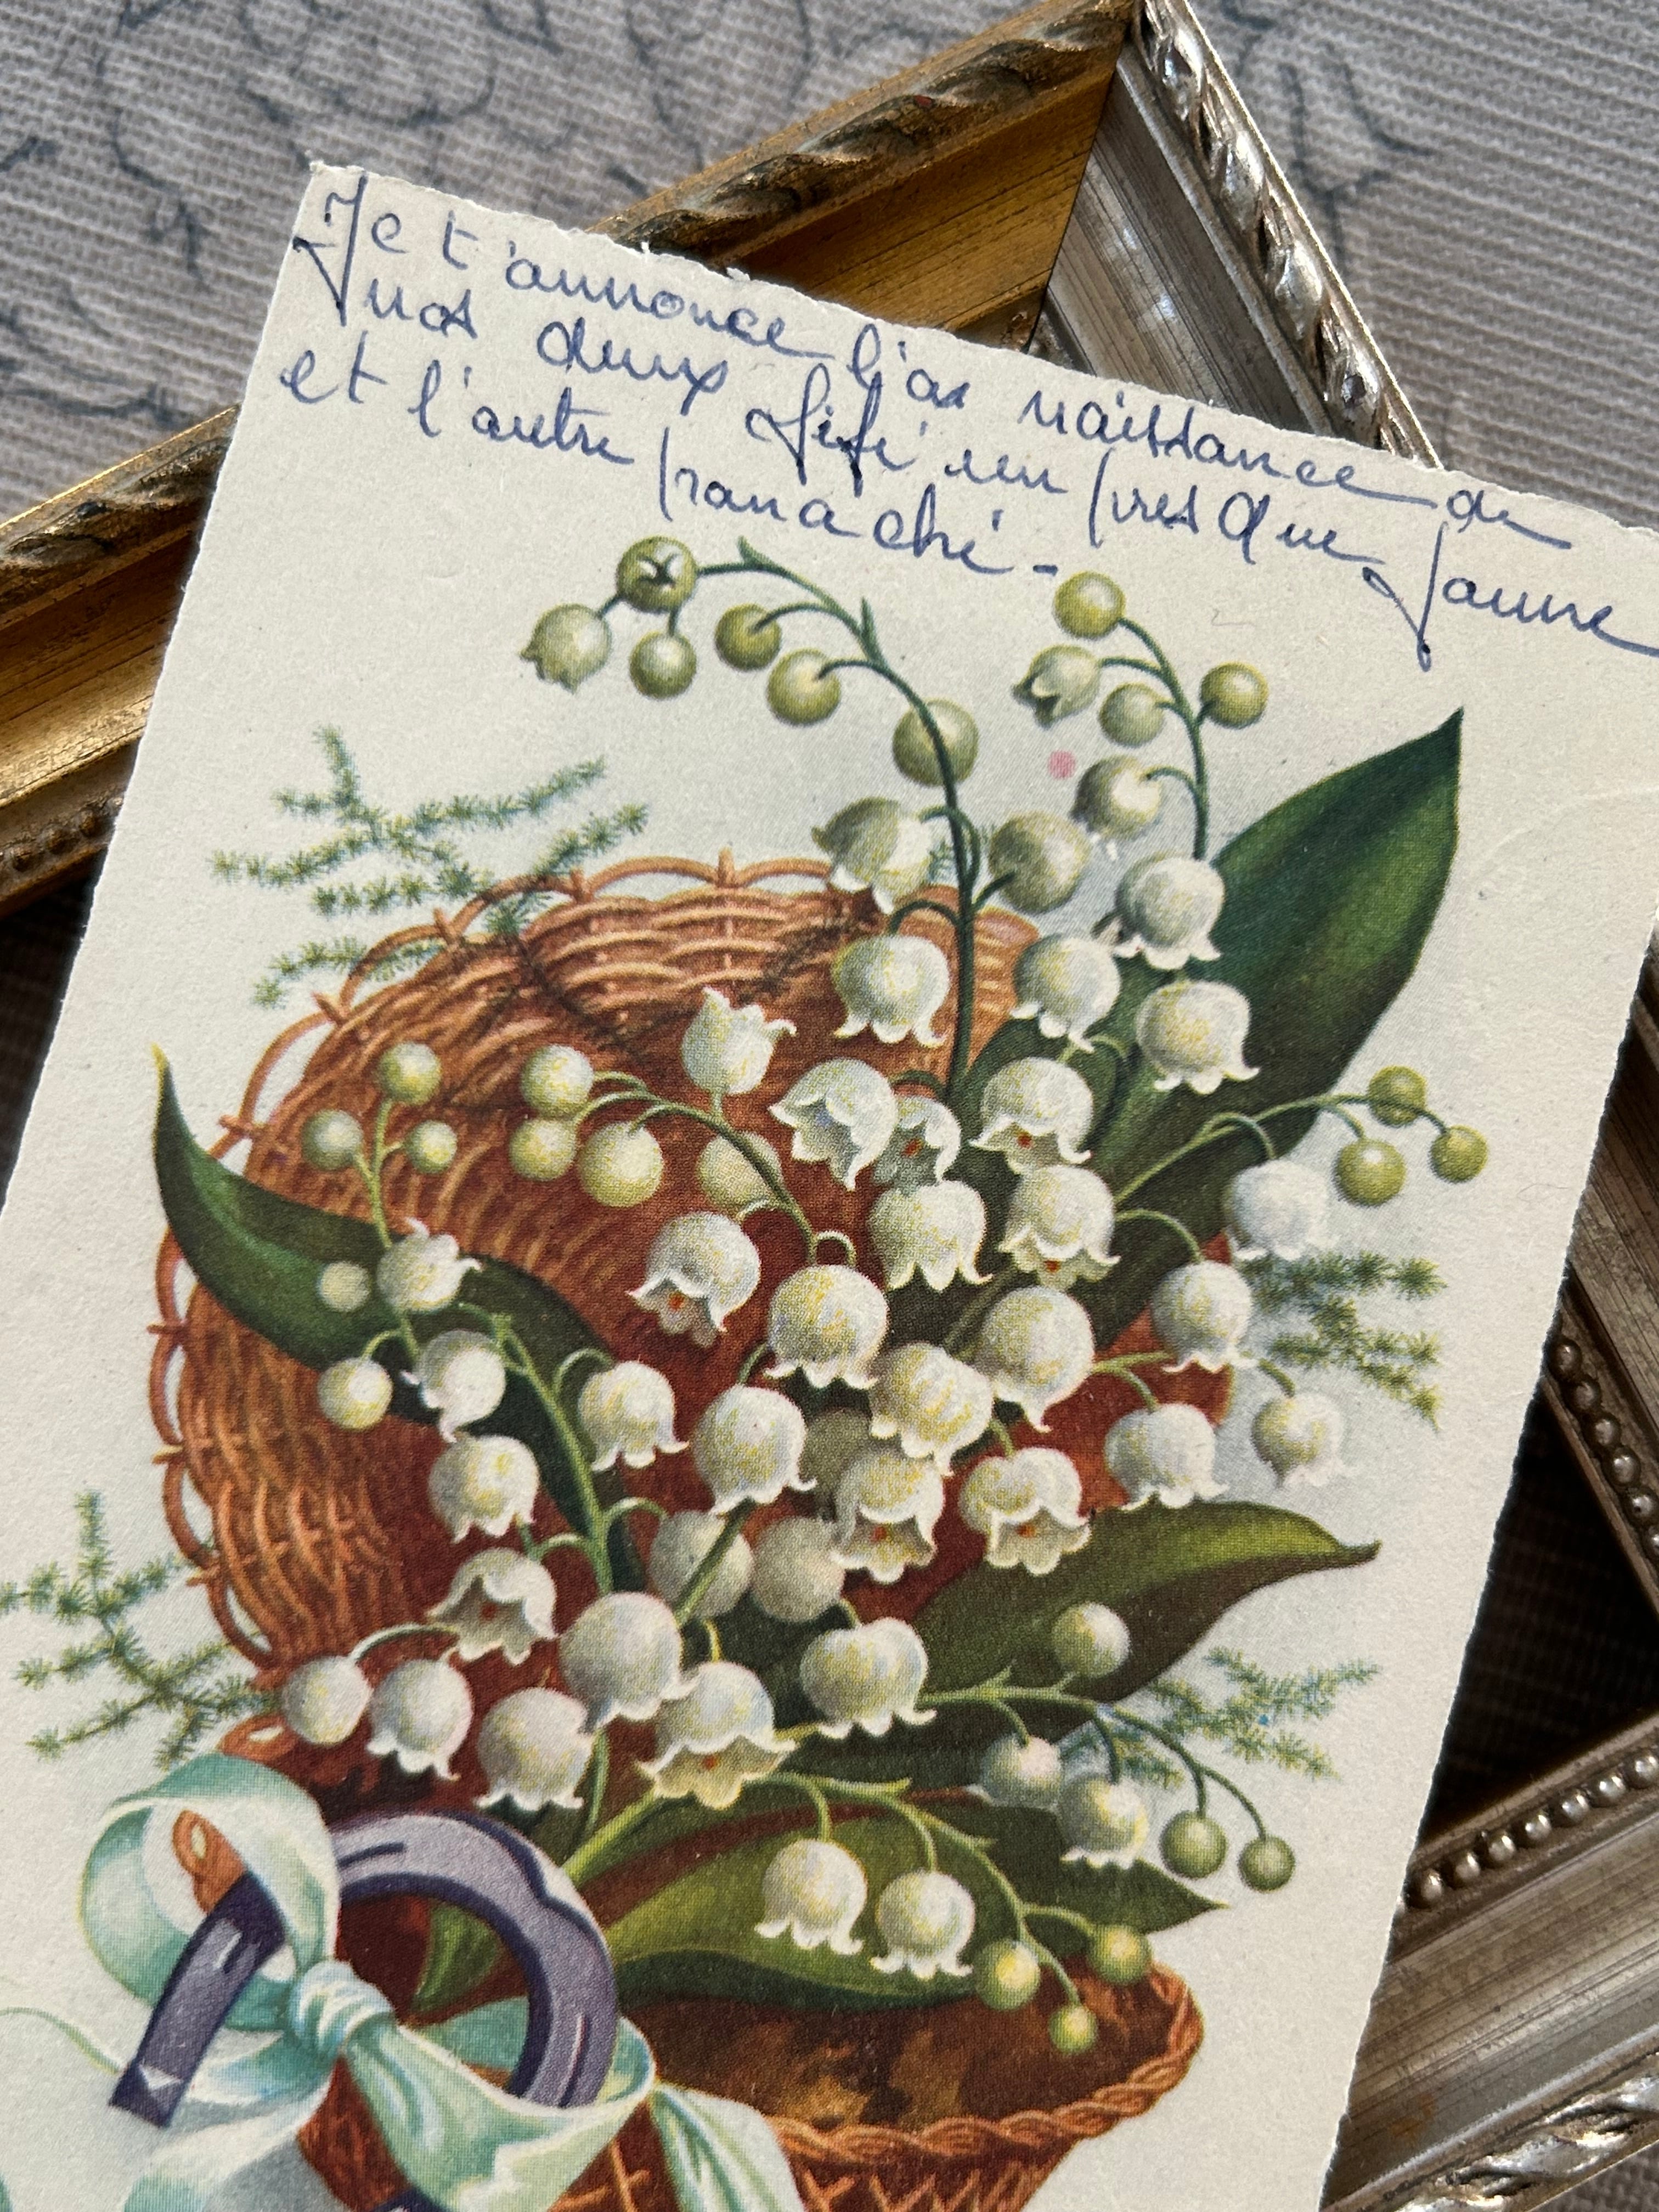 Je t'annonce l'as naissance de
nos deux fifi un presque jaune
et l'autre panaché -